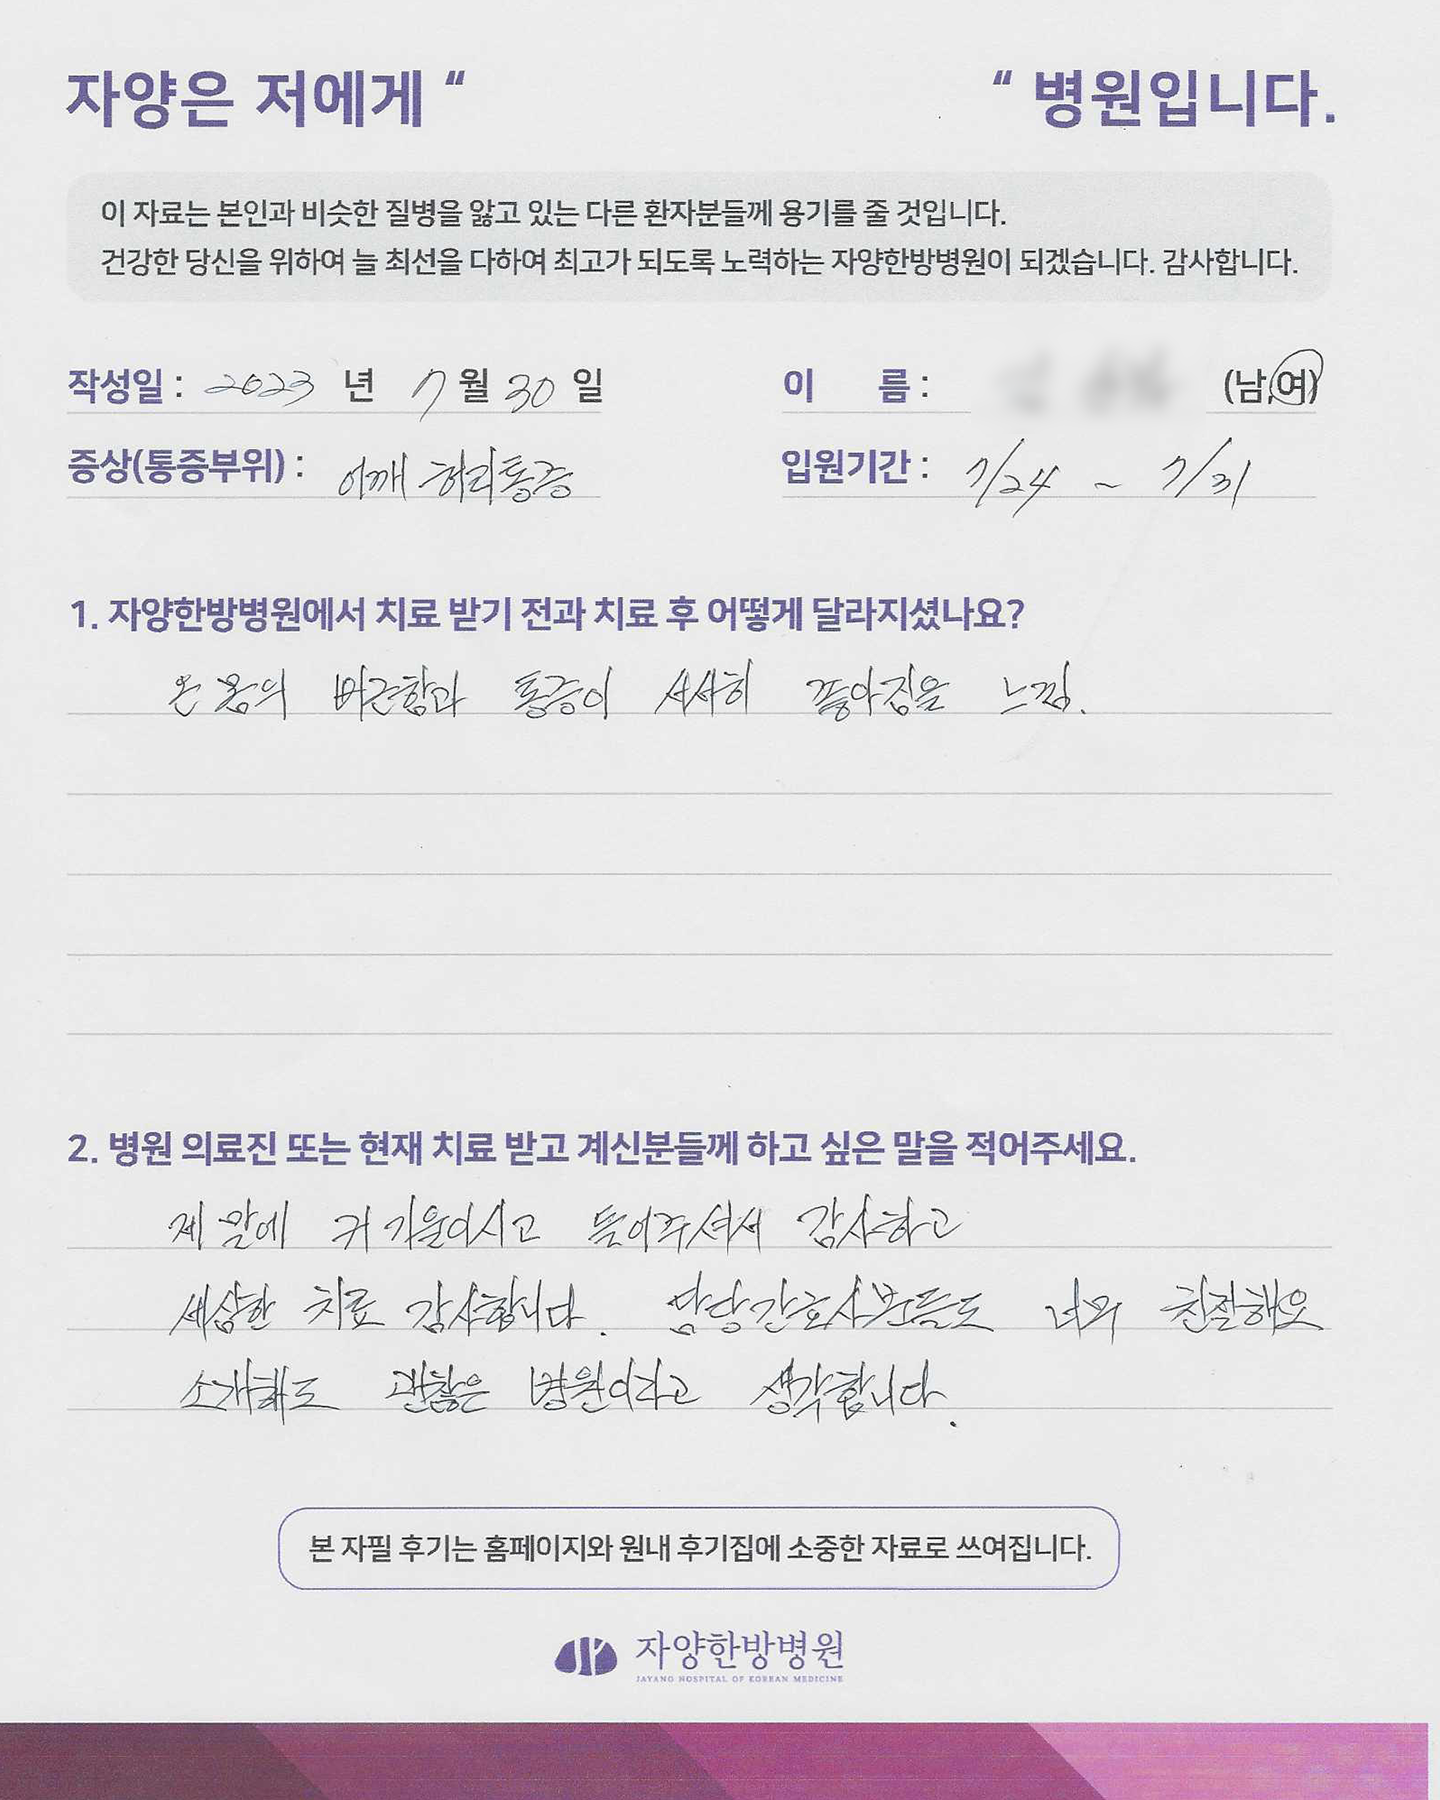 자양은 저에게 “ “ 병원입니다.
이 자료는 본인과 비슷한 질병을 앓고 있는 다른 환자분들께 용기를 줄 것입니다.
건강한 당신을 위하여 늘 최선을 다하여 최고가 되도록 노력하는 자양한방병원이 되겠습니다. 감사합니다.
작성일 : 2023 년 7 월 30 일 이 름 : (남,여)
증상(통증부위) : 어깨 허리통증 입원기간 : 7/24 ~ 7/31
1. 자양한방병원에서 치료 받기 전과 치료 후 어떻게 달라지셨나요?
온 몸의 뻐근함과 통증이 서서히 좋아짐을 느낌.
2. 병원 의료진 또는 현재 치료 받고 계신분들께 하고 싶은 말을 적어주세요.
제 말에 귀 기울이시고 들어주셔서 감사하고
세심한 치료 감사합니다. 담당간호사분들도 너무 친절해요
소개해도 괜찮은 병원이라고 생각합니다.
본 자필 후기는 홈페이지와 원내 후기집에 소중한 자료로 쓰여집니다.
자양한방병원
JAYANG HOSPITAL OF KOREAN MEDICINE